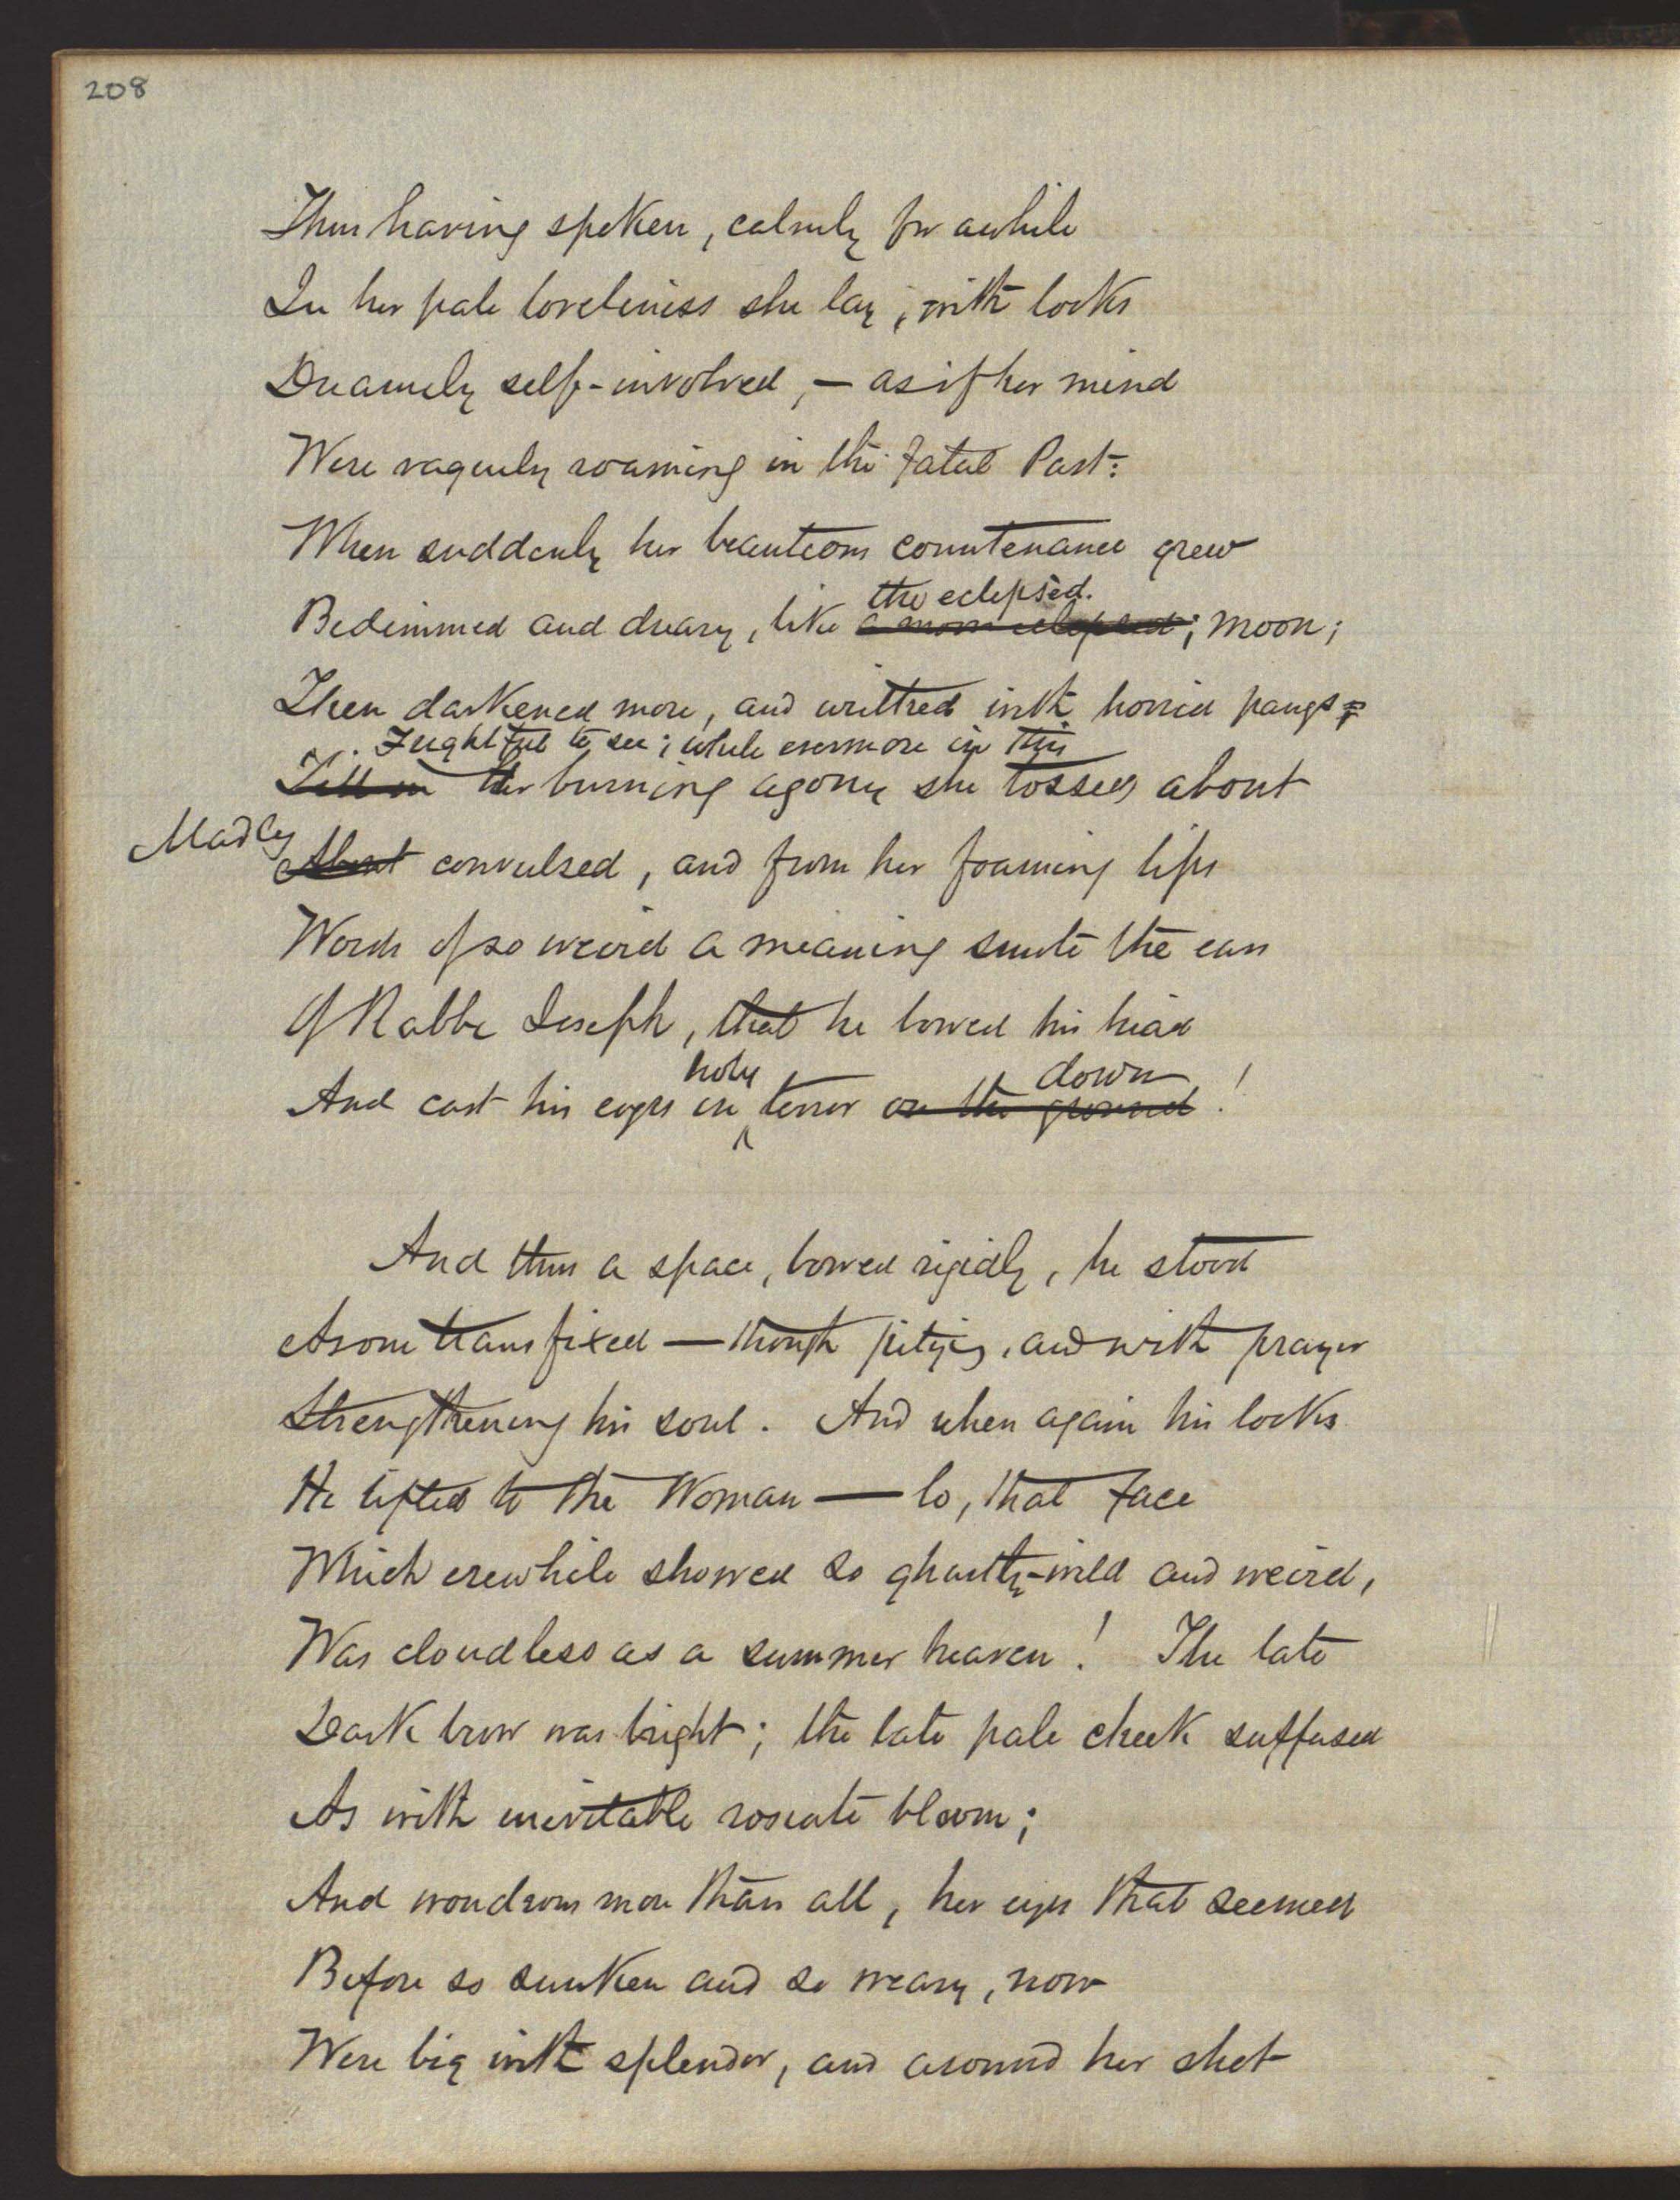 208
Thus having spoken, calmly for awhile
In her pale loveliness she lay, with looks
Dreamely self-involved, — as if her mind
Were vaguely roaming in the fatal Past:
When suddenly her beauteous countenance grew
the eclipsed.
Bedimmed and dreary, like a moon eclipsed; moon;
Then darkened more, and writhed with horrid pangs;
Frightful to see; while evermore in this
Till in her burning agony she tossed about
Madly
About convulsed, and from her foaming lips
Words of so weird a meaning smote the ears
Of Rabbi Joseph, that he bowed his head
holy down
And cast his eyes in terror on the ground!
And thus a space, bowed rigidly, he stood
As one transfixed — though pitying, and with prayer
Strengthening his soul. And when again his looks
He lifted to the Woman — lo, that face
Which erewhile showed so ghastly-wild and weird,
Was cloudless as a summer heaven! The late
Dark brow was bright; the late pale cheek suffused
As with inevitable roseate bloom;
And wondrous more than all, her eyes that seemed
Before so sunken and so weary, now
Were big with splendor, and around her shot